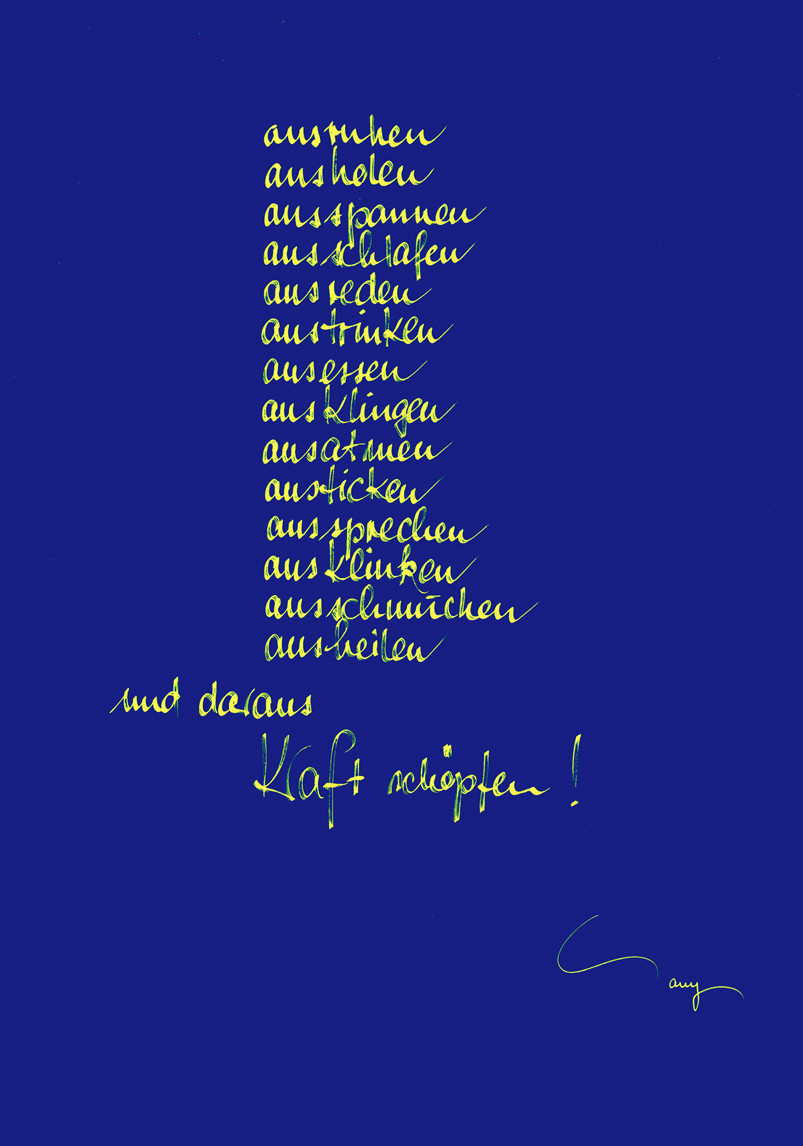 ausruhen
ausholen
ausspannen
ausschlafen
ausreden
austrinken
ausessen
ausklingen
ausatmen
austicken
aussprechen
ausklinken
ausheilen
und daraus
Kraft schöpfen!
any